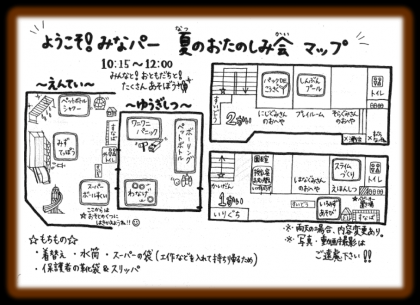 ようこそ!みなパー 夏のおたのしみ会 マップ
なつ
かい
10:15～12:00
みんなと!おともだちと!
たくさんあそぼう
～えんてい～
～ゆうぎしつ～
ペットボトル
シャワー
みず
てっぽう
スーパー
ボールすくい
すなば
ワニワニ
パニック
わなげ
ボーリング
ペットボトル
しんぶん
プール
トイレ
すいどう
2かい
にじぐみさん
のおへや
プレイルーム
そらぐみさん
のおへや
かいだん
1かい
いりぐち
職員室
ほなぐみさん
のおへや
スライム
づくり
えほんしつ
トイレ
すいどう
いろみず
あそび
すなば
☆もちもの☆
・着替え・水筒・スーパーの袋(工作などを入れて持ち帰るため)
・保護者の靴袋&スリッパ
※雨天の場合、内容変更あり。
※写真・動画撮影は
ご遠慮下さい!!